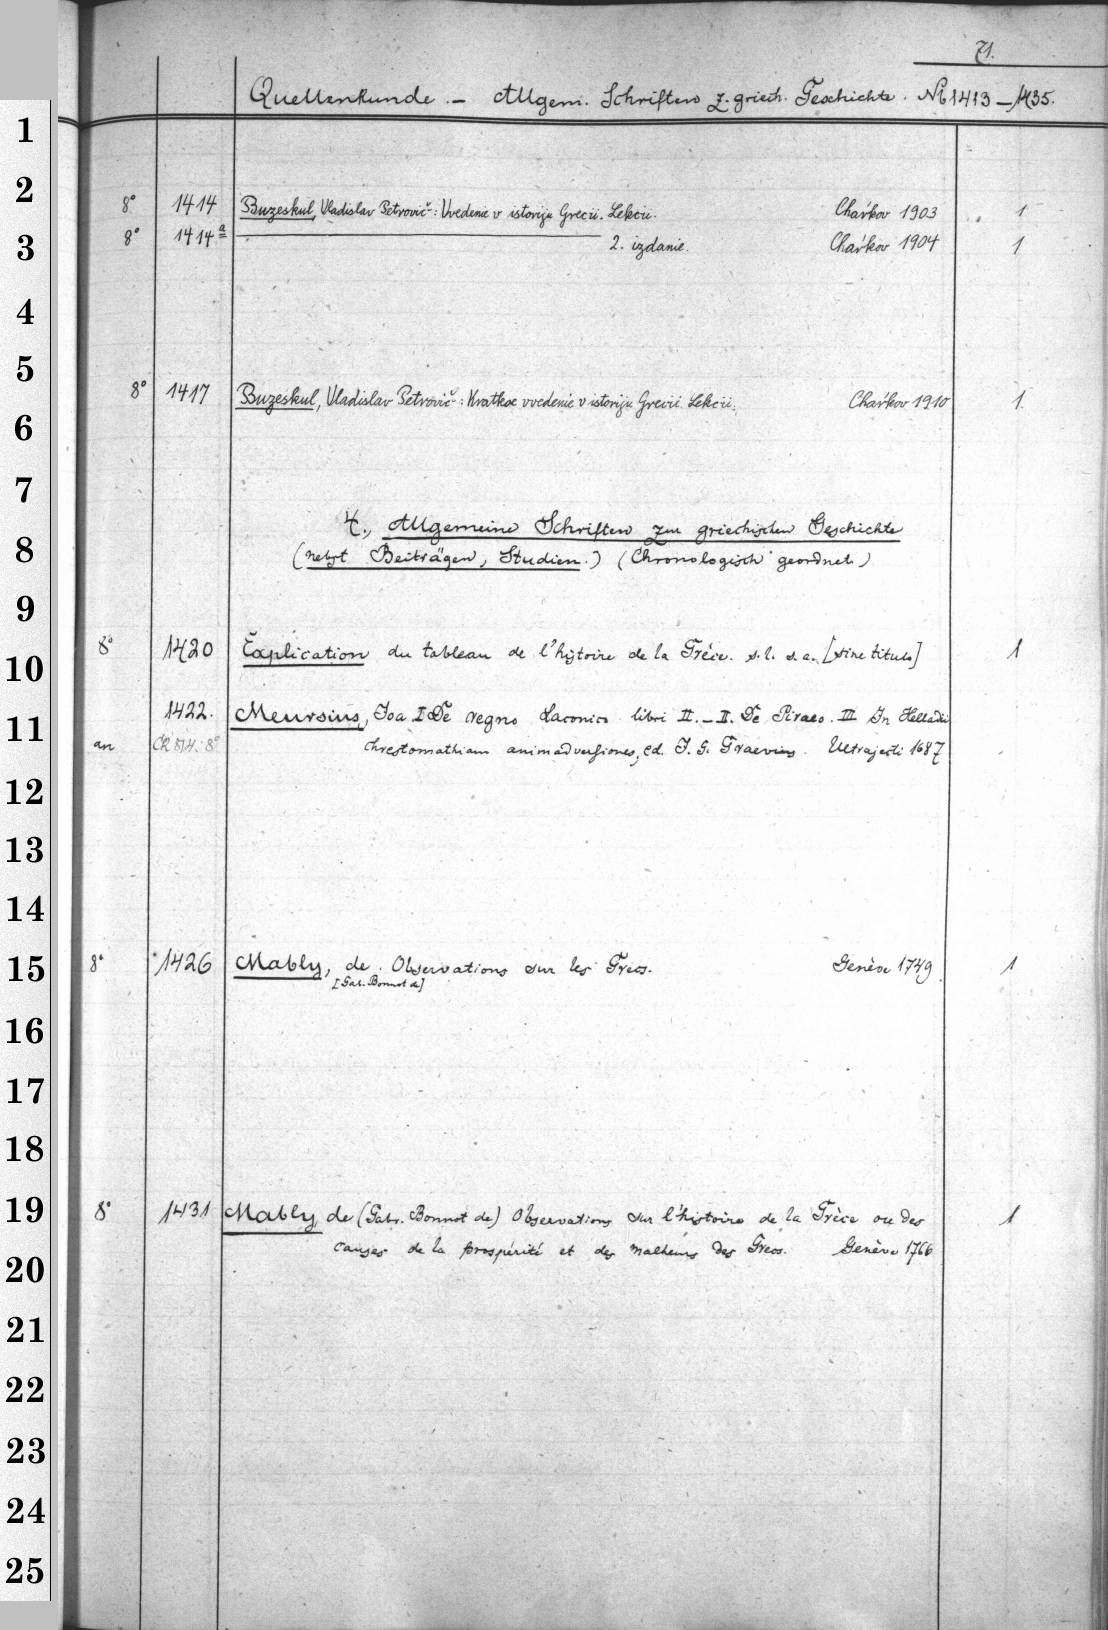 71.
Quellenkunde. — Allgem. Schriften z. griech. Geschichte. No 1413–1435.
1
2
8° 1414 Buzeskul, Vladislav Petrovič: Vvedenie v istoriju Grecii. Lekcii. Chaŕkov 1903 1
3
8° 1414a ———— 2. izdanie. Chaŕkov 1904 1
4
5
8° 1417 Buzeskul, Vladislav Petrovič: Kratkoe vvedenie v istoriju Grecii. Lekcii. Chaŕkov 1910 1.
6
7
4., Allgemeine Schriften zur griechischen Geschichte
8
(nebst Beiträgen, Studien.) (Chronologisch geordnet.)
9
8° 1420 Explication du tableau de l'histoire de la Grèce. s. l. s. a. [sine titulo] 1
10
1422. Meursius, Joa I De regno Laconico libri II. – II. De Piraeo. III In Helladii
11
an 8° chrestomathiam animadversiones, ed. J. G. Graevius. Ultrajecti 1687
12
13
14
15
8° 1426 Mably, de. Observations sur les Grecs. Genève 1749. 1
[Gab. Bonnot de]
16
17
18
19
8° 1431 Mably, de (Gabr. Bonnot de) Observations sur l'histoire de la Grèce ou des 1
causes de la prospérité et des malheurs des Grecs. Genève 1766
20
21
22
23
24
25